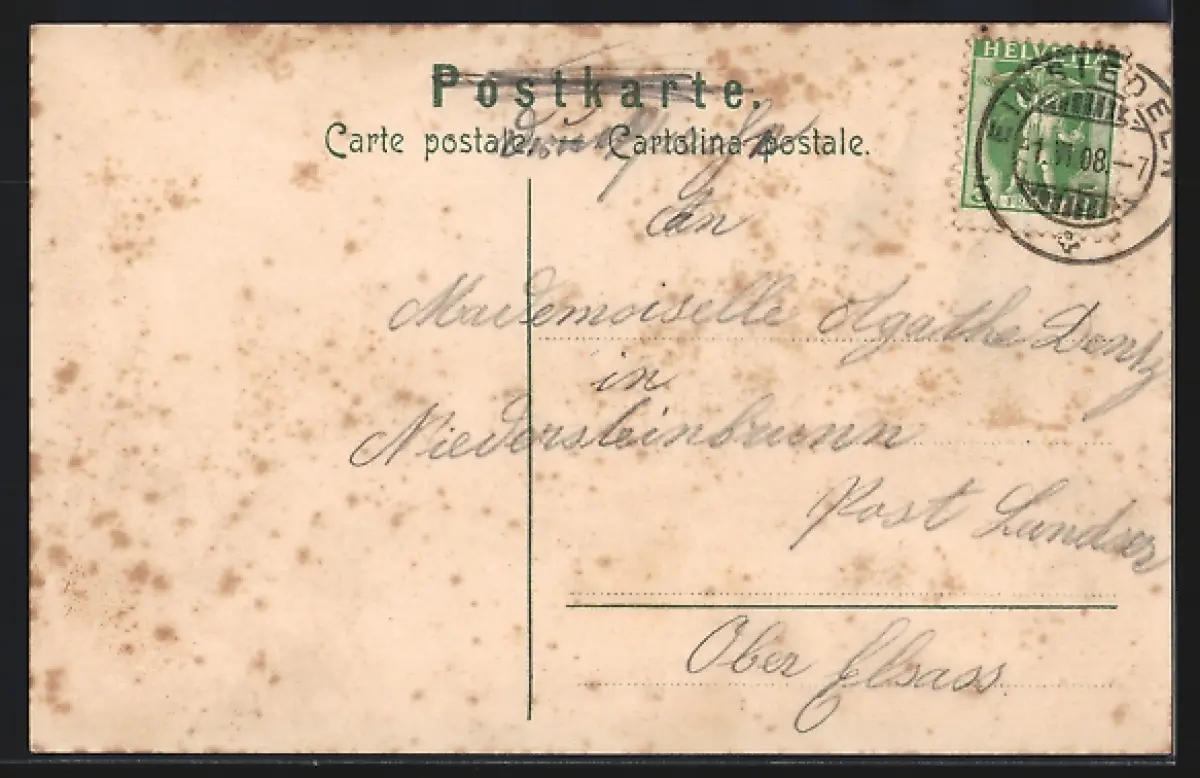 Postkarte.
Carte postale. Cartolina postale.
HELVETIA
EINSIEDELN
08.–7
An
Mademoiselle Agathe Dentz
in
Niedersteinbrunn
Post Landser
Ober Elsass